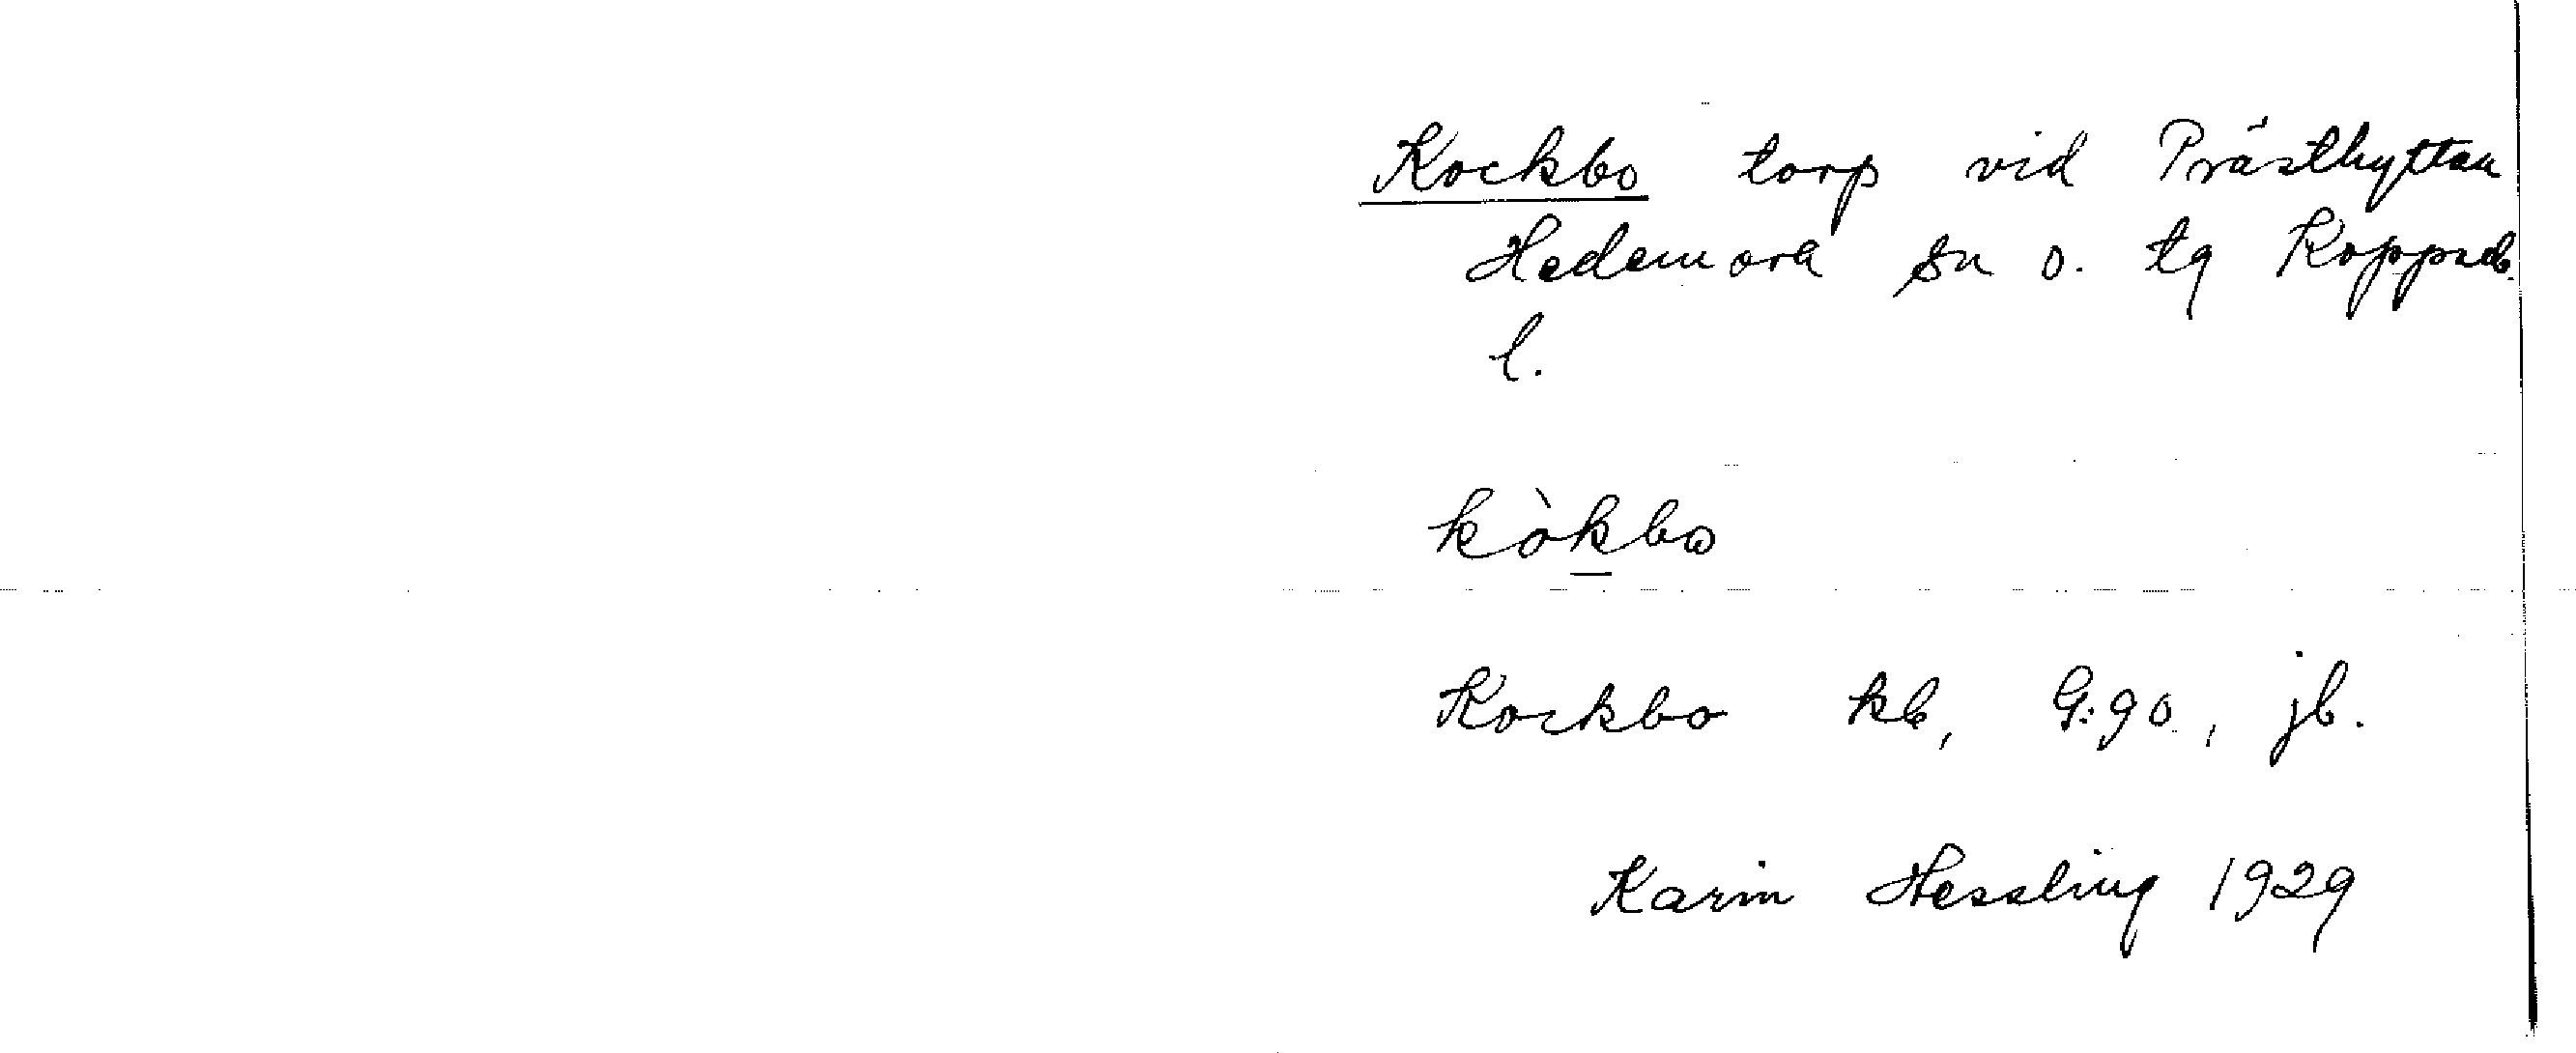 Kockbo torp vid Prästhyttan
Hedemora sn o. tg Koppab.
l.
kòkbo
Kockbo kb, G:90, jb.
Karin Hessling 1929